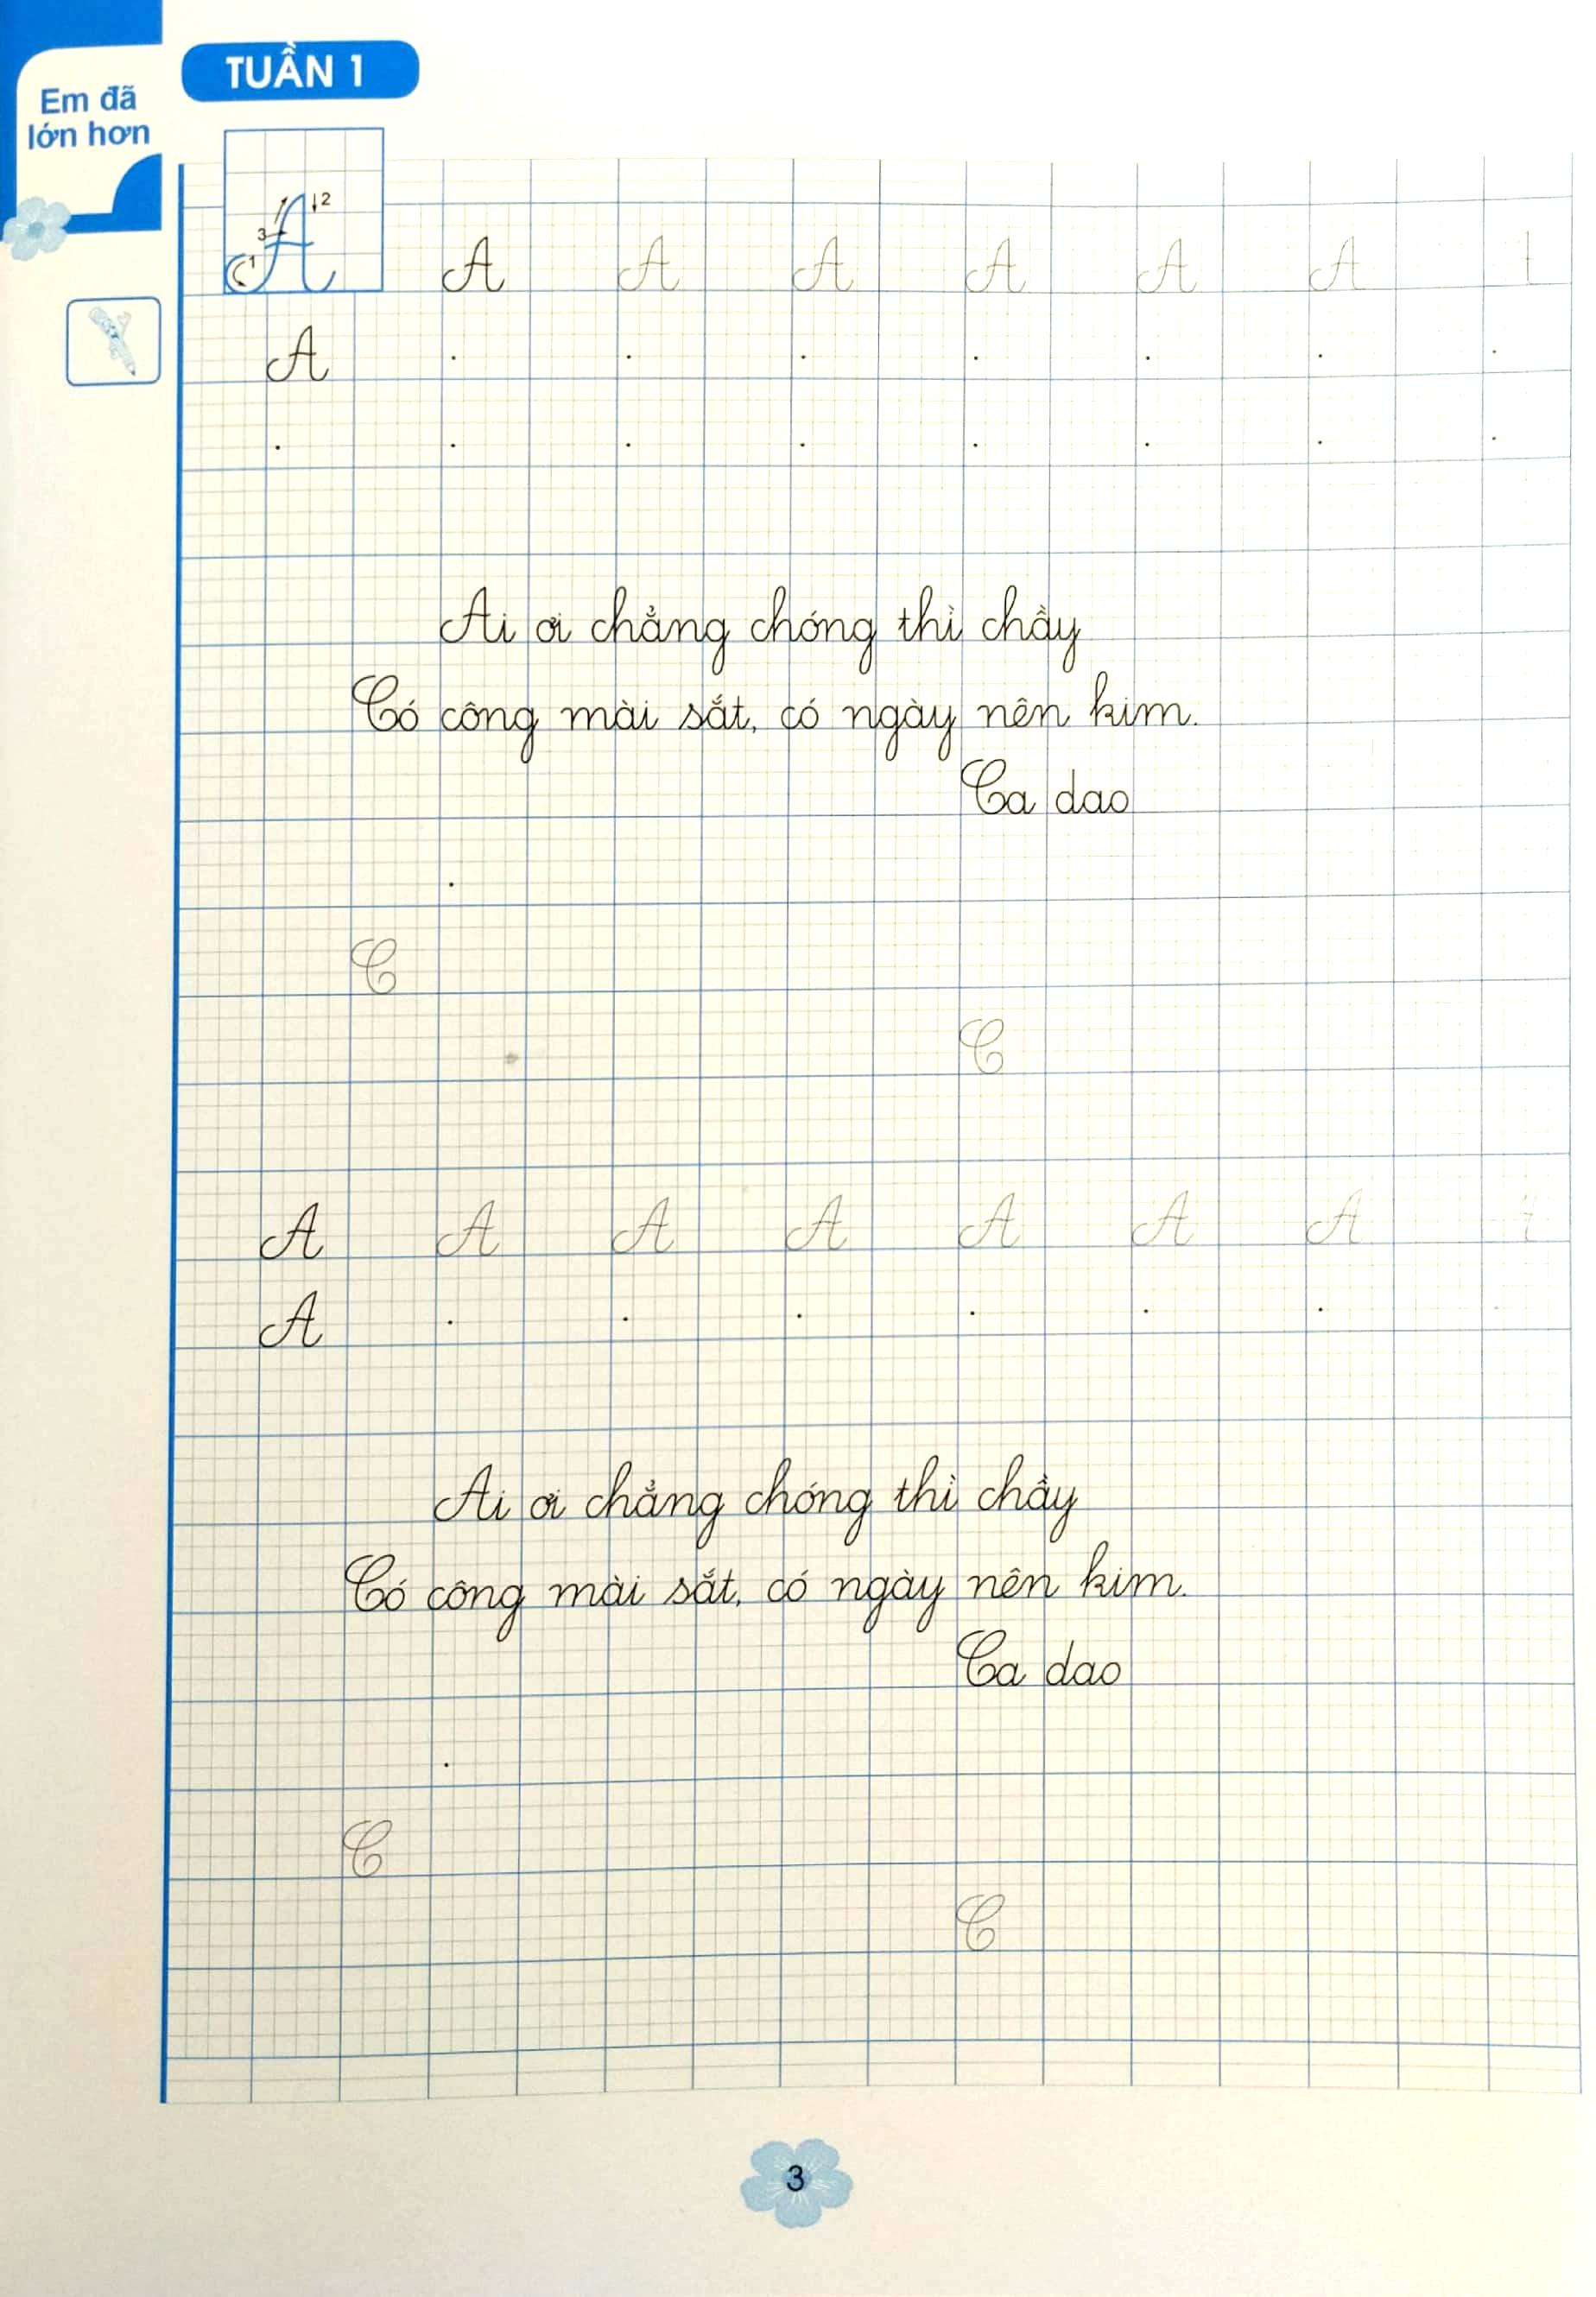 TUẦN 1
Em đã
lớn hơn
1 2 3
A A A A A A A
A
Ai ơi chẳng chóng thì chầy
Có công mài sắt, có ngày nên kim.
Ca dao
C
C
A A A A A A A
A
Ai ơi chẳng chóng thì chầy
Có công mài sắt, có ngày nên kim.
Ca dao
C
C
3